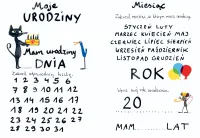 Moje
URODZINY
Mam urodziny
DNIA
1 2 3 4 5 6
7 8 9 10 11 12
13 14 15 16 17
18 19 20 21 22
23 24 25 26 27
28 29 30 31
Miesiąc
STYCZEŃ LUTY
MARZEC KWIECIEŃ MAJ
CZERWIEC LIPIEC SIERPIEŃ
WRZESIEŃ PAŹDZIERNIK
LISTOPAD GRUDZIEŃ
ROK
20
MAM LAT